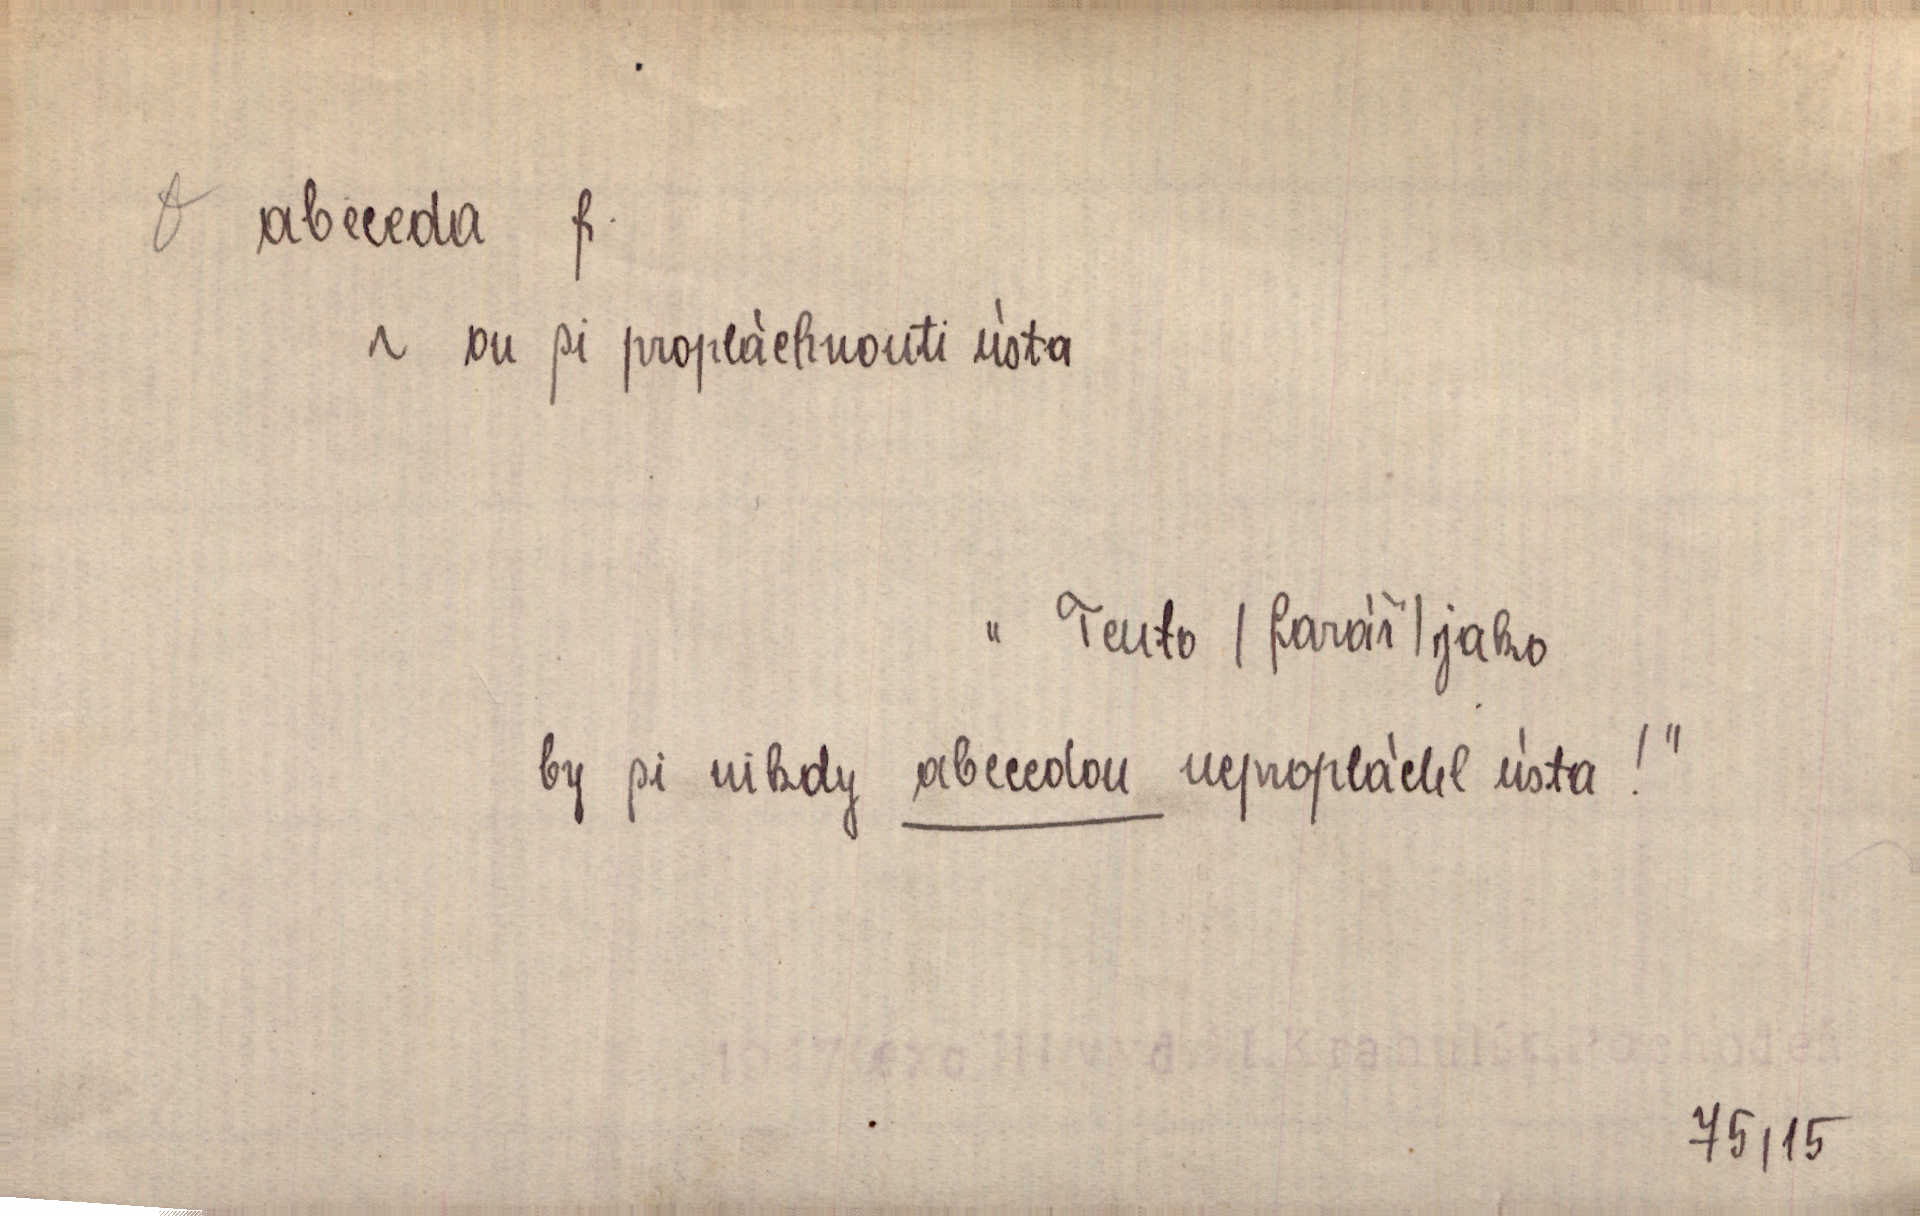 abeceda f.
~ ou si propláchnouti ústa
„ Tento / farář / jako
by si nikdy abecedou nepropláchl ústa ! "
75,15